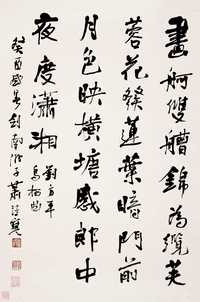 畫舸雙艚錦為纜芙
蓉花發蓮葉暗門前
月色映橫塘感郎中
夜度瀟湘
劉方平
烏栖曲
癸酉 劍南 子蕭